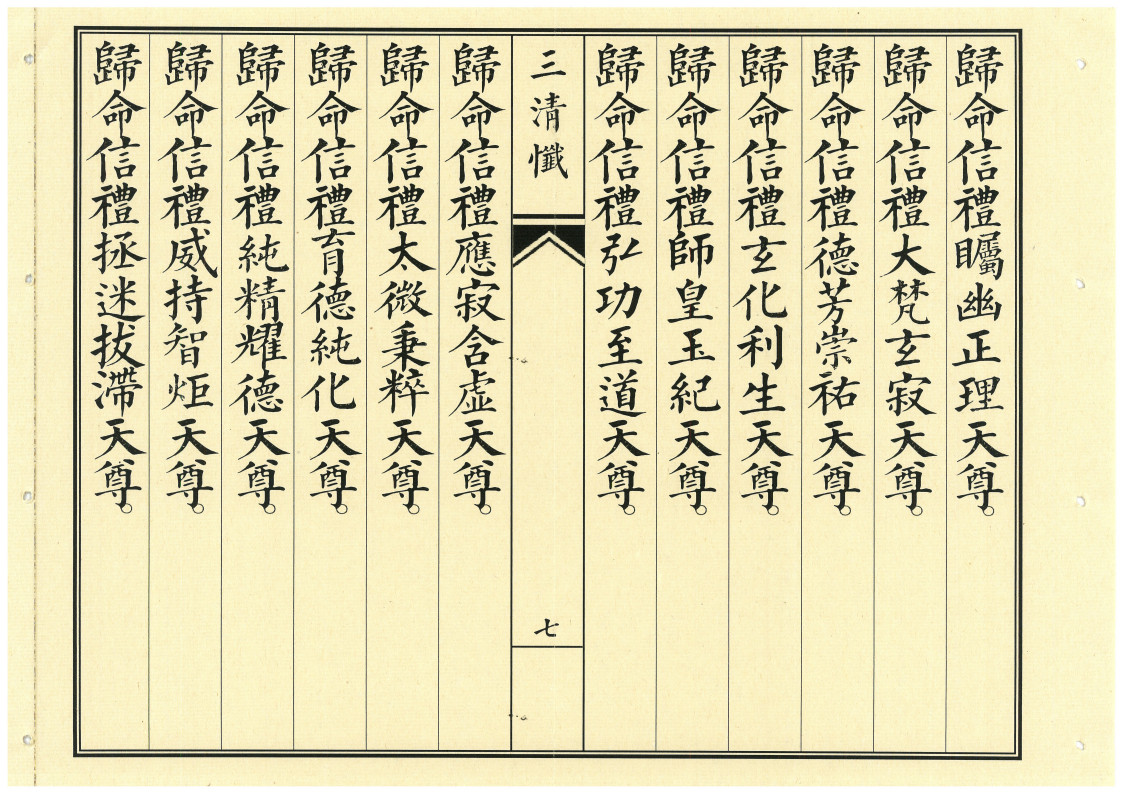 歸命信禮矚幽正理天尊。
歸命信禮大梵玄寂天尊。
歸命信禮德芳崇祐天尊。
歸命信禮玄化利生天尊。
歸命信禮師皇玉紀天尊。
歸命信禮弘功至道天尊。
三清懺
七
歸命信禮應寂含虛天尊。
歸命信禮太微秉粹天尊。
歸命信禮育德純化天尊。
歸命信禮純精耀德天尊。
歸命信禮威持智炬天尊。
歸命信禮拯迷拔滯天尊。